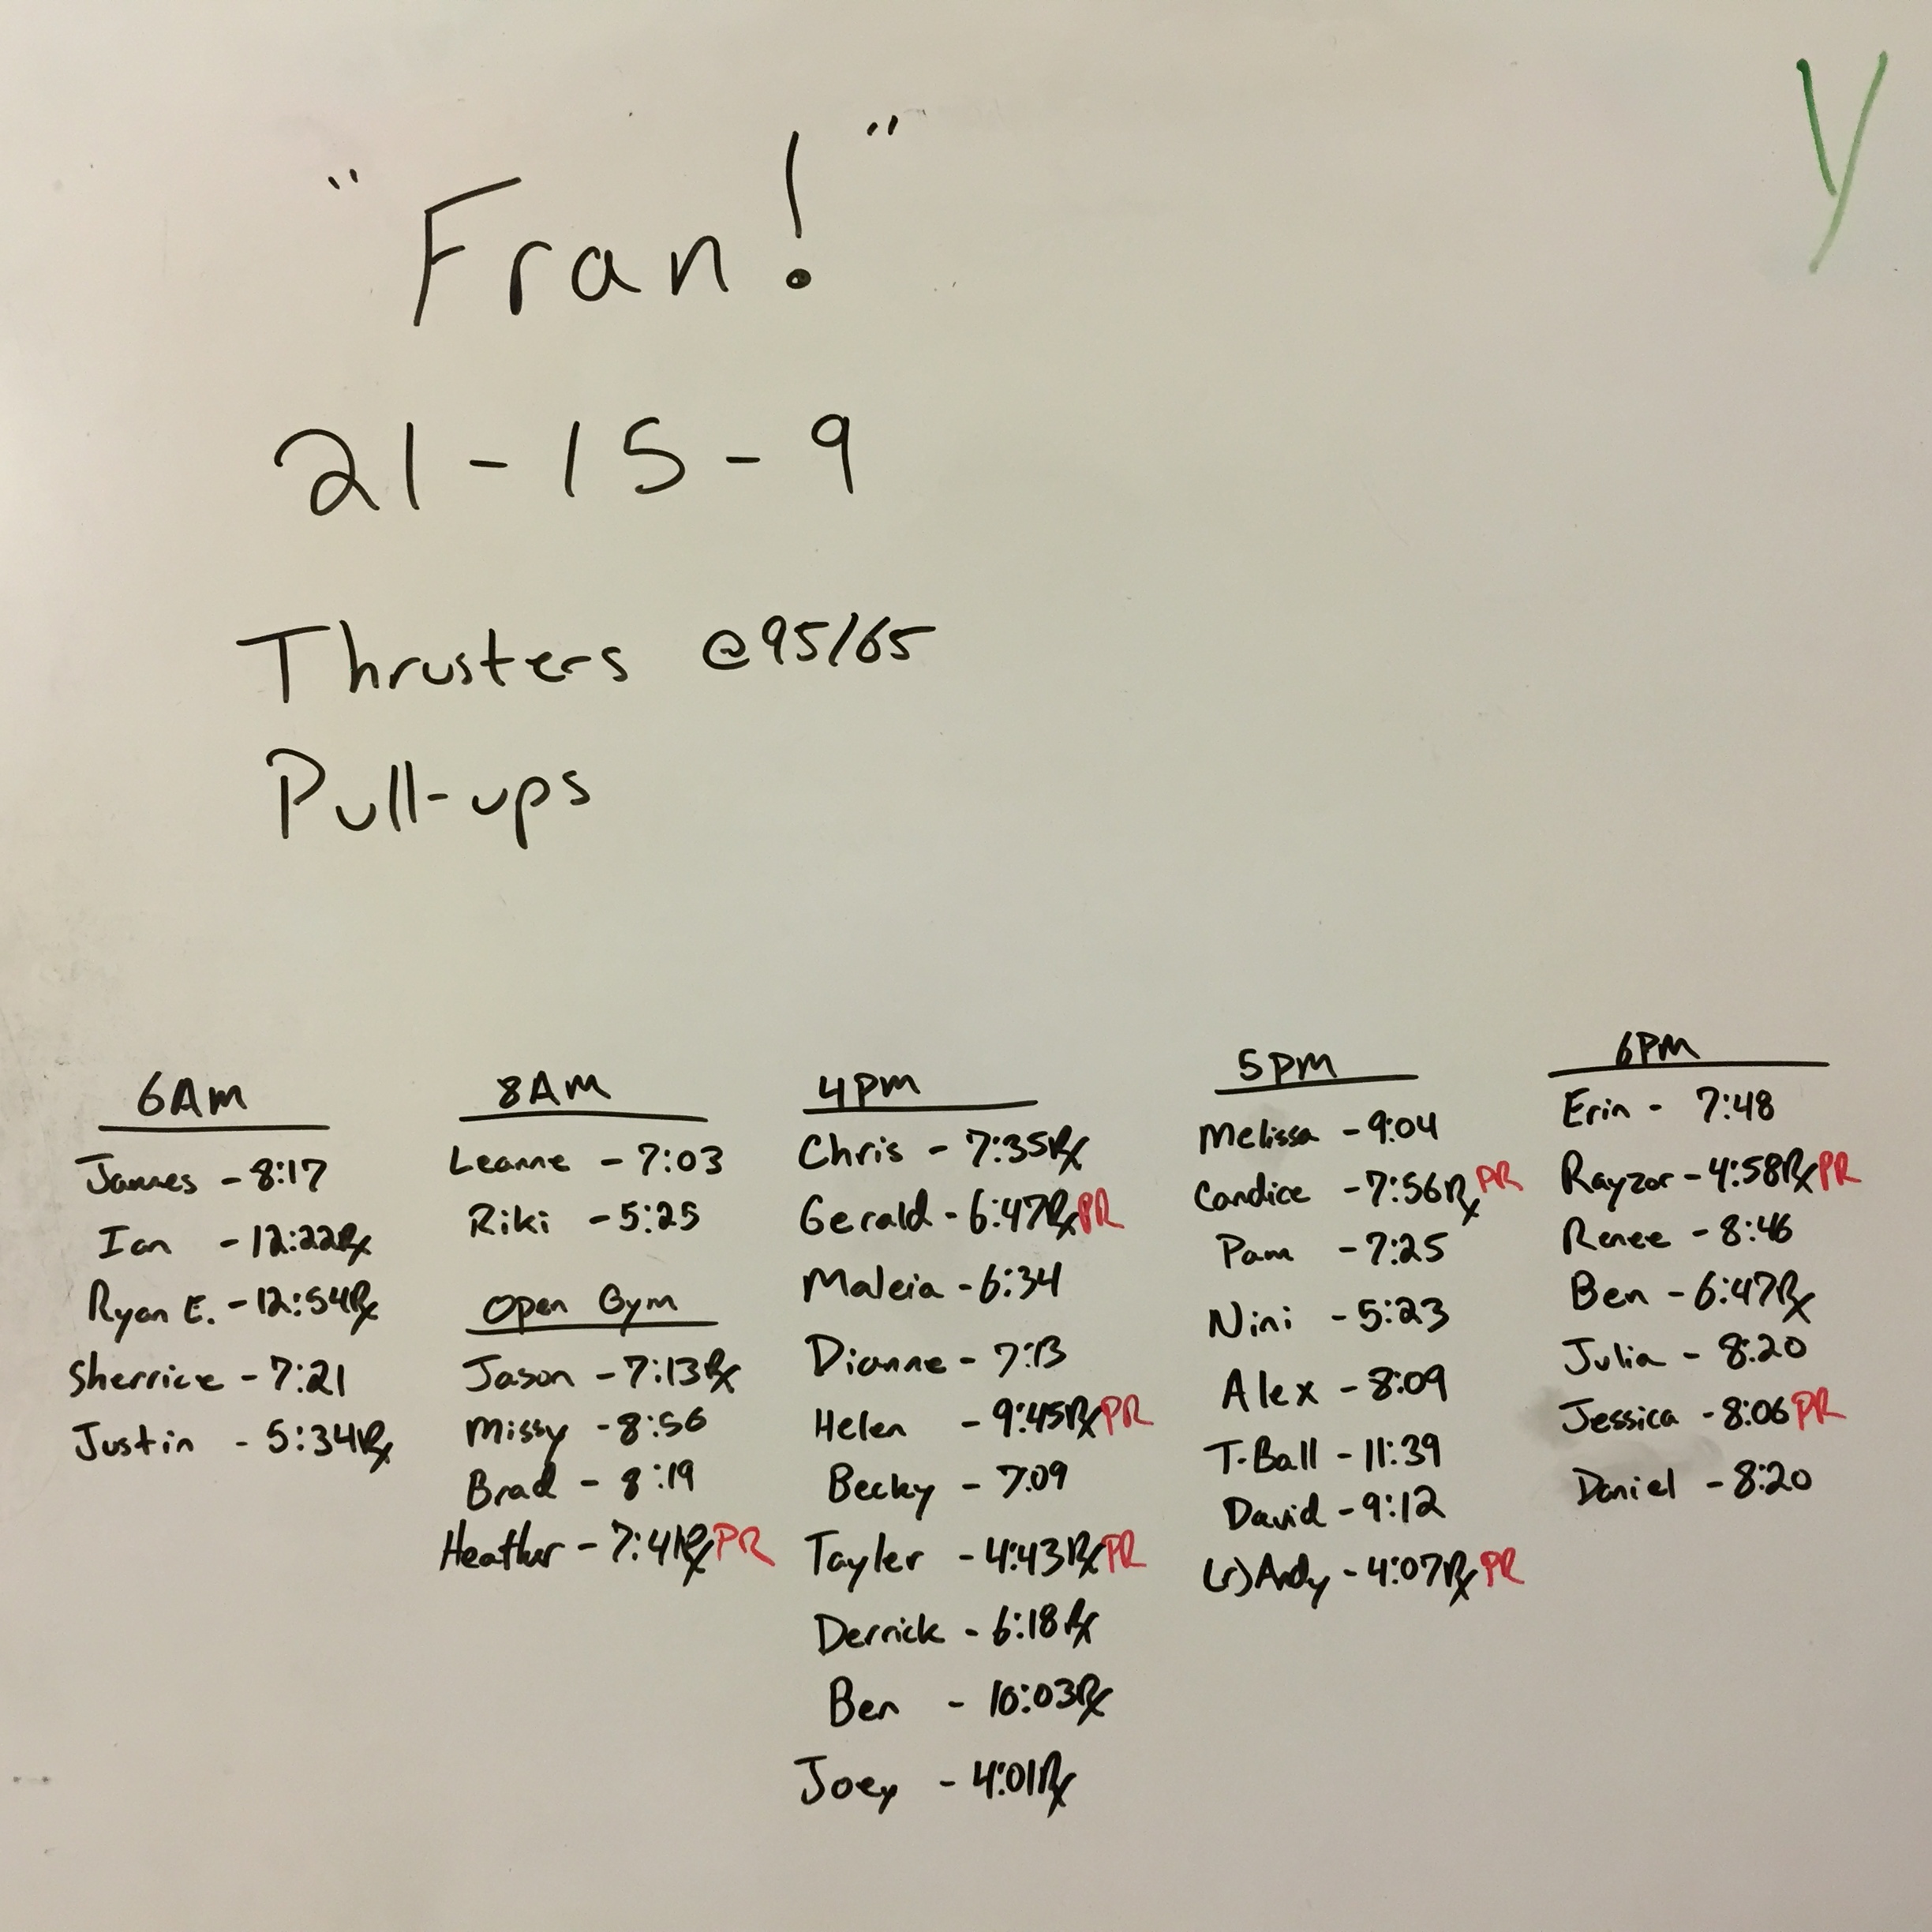 "Fran!"
Y
21-15-9
Thrusters @95/65
Pull-ups
6AM
James - 8:17
Ian - 12:22Rx
Ryan E. - 12:54Rx
Sherrice - 7:21
Justin - 5:34Rx
8AM
Leanne - 7:03
Riki - 5:25
Open Gym
Jason - 7:13Rx
Missy - 8:56
Brad - 8:19
Heather - 7:41Rx PR
4PM
Chris - 7:35Rx
Gerald - 6:47Rx PR
Maleia - 6:34
Dianne - 7:13
Helen - 9:45Rx PR
Becky - 7:09
Tayler - 4:43Rx PR
Derrick - 6:18Rx
Ben - 10:03Rx
Joey - 4:01Rx
5PM
Melissa - 9:04
Candice - 7:56Rx PR
Pam - 7:25
Nini - 5:23
Alex - 8:09
T-Ball - 11:39
David - 9:12
(r)Andy - 4:07Rx PR
6PM
Erin - 7:48
Rayzor - 4:58Rx PR
Renee - 8:46
Ben - 6:47Rx
Julia - 8:20
Jessica - 8:06 PR
Daniel - 8:20